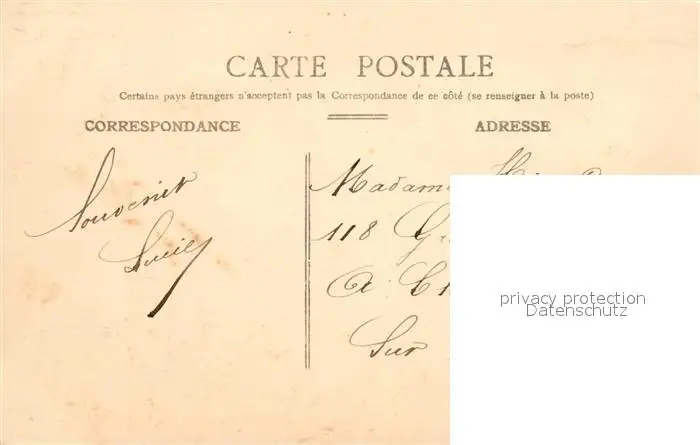 CARTE POSTALE
Certains pays étrangers n'acceptent pas la Correspondance de ce côté (se renseigner à la poste)
CORRESPONDANCE
ADRESSE
Souvenir
Lucie
Madame
118
A
Sur
privacy protection
Datenschutz